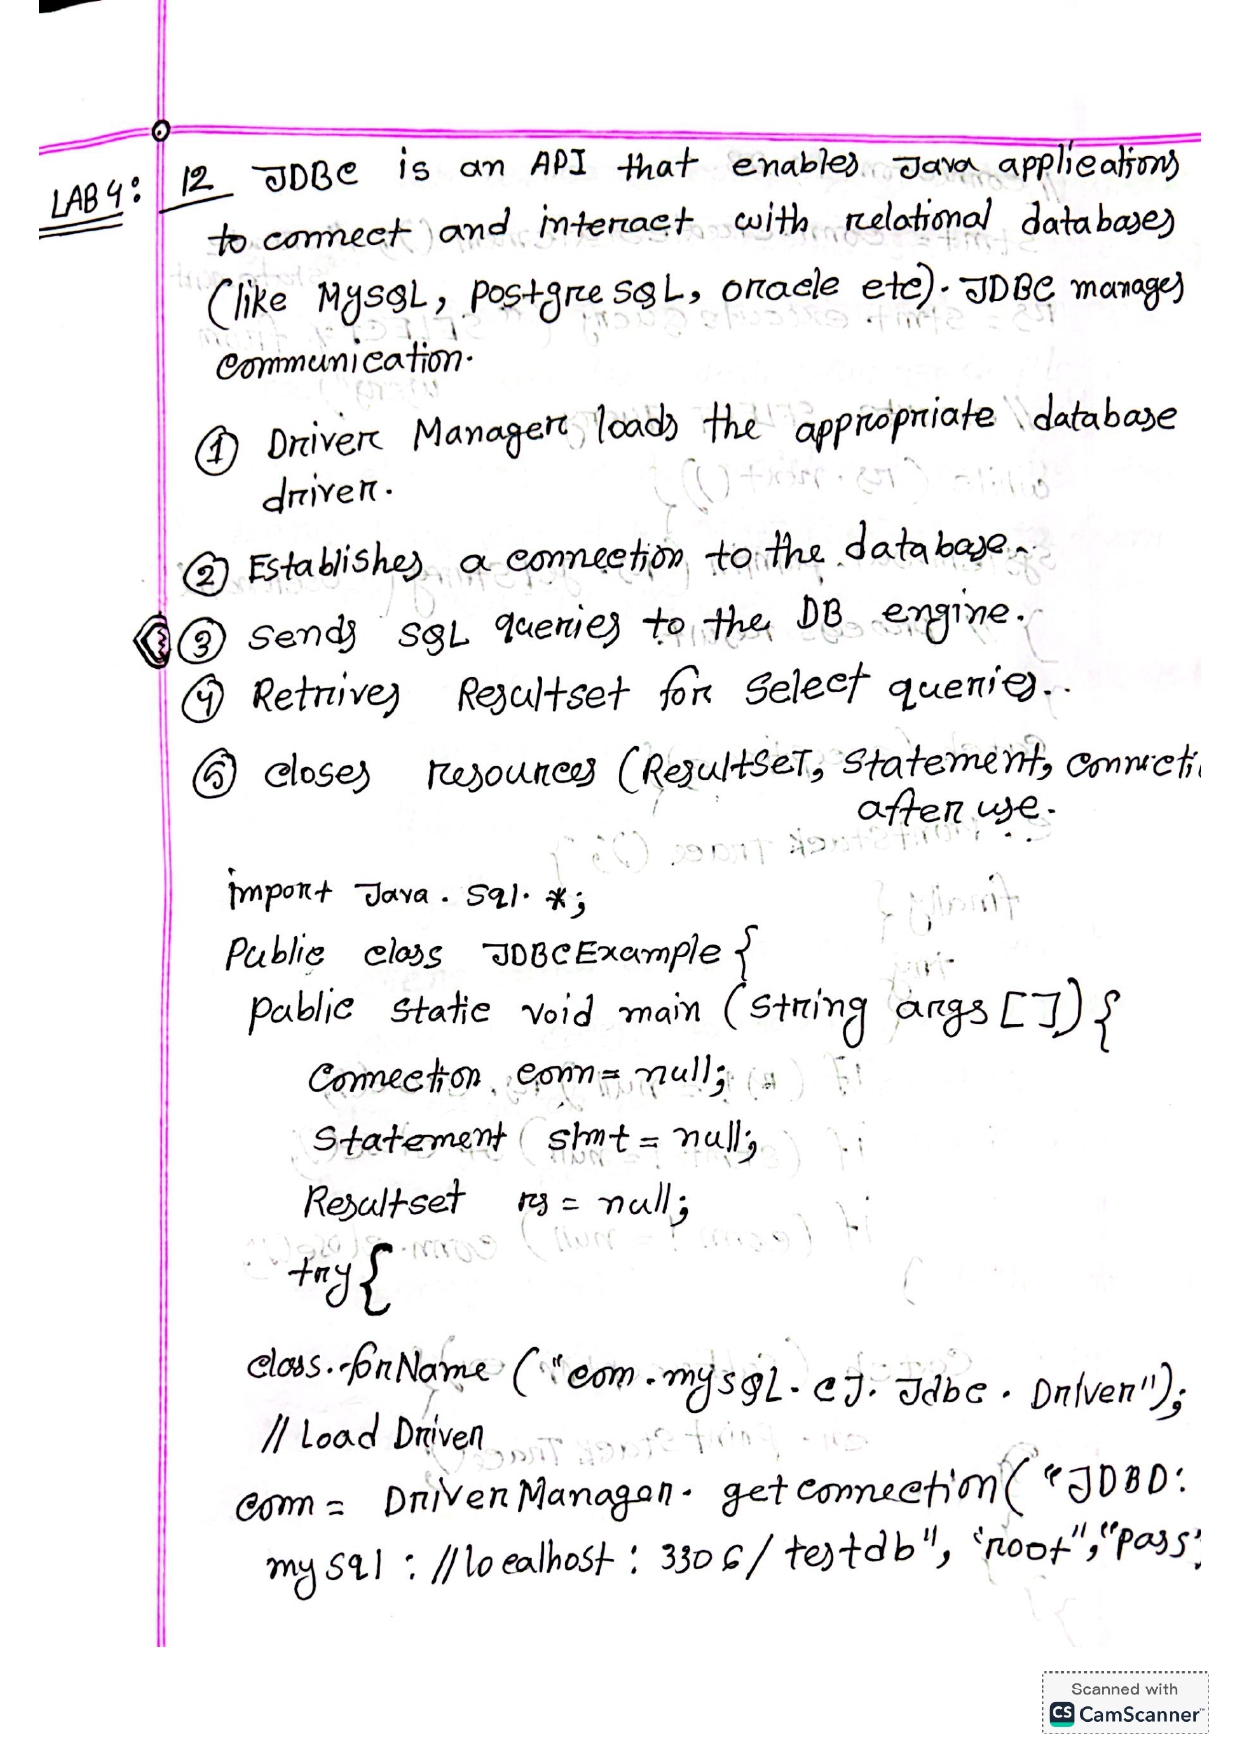 LAB 4: 12 JDBC is an API that enables Java applications
to connect and interact with relational databases
(like MySQL, PostgreSQL, oracle etc). JDBC manages
communication.
① Driver Manager loads the appropriate database
driver.
② Establishes a connection to the database.
③ Sends SQL queries to the DB engine.
④ Retrives Resultset for Select queries..
⑤ closes resources (ResultSET, Statement, connecti
after use.
import Java. sql. *;
Public class JDBCExample {
public static void main (String args []) {
Connection conn = null;
Statement stmt = null;
Resultset rs = null;
try {
class.forName ("com.mysqL.cJ. Jdbc. Driver");
// Load Driver
conn = DriverManager. getconnection( "JDBD:
mysql : //localhost : 3306/testdb", "root", "pass"
Scanned with
CS CamScanner